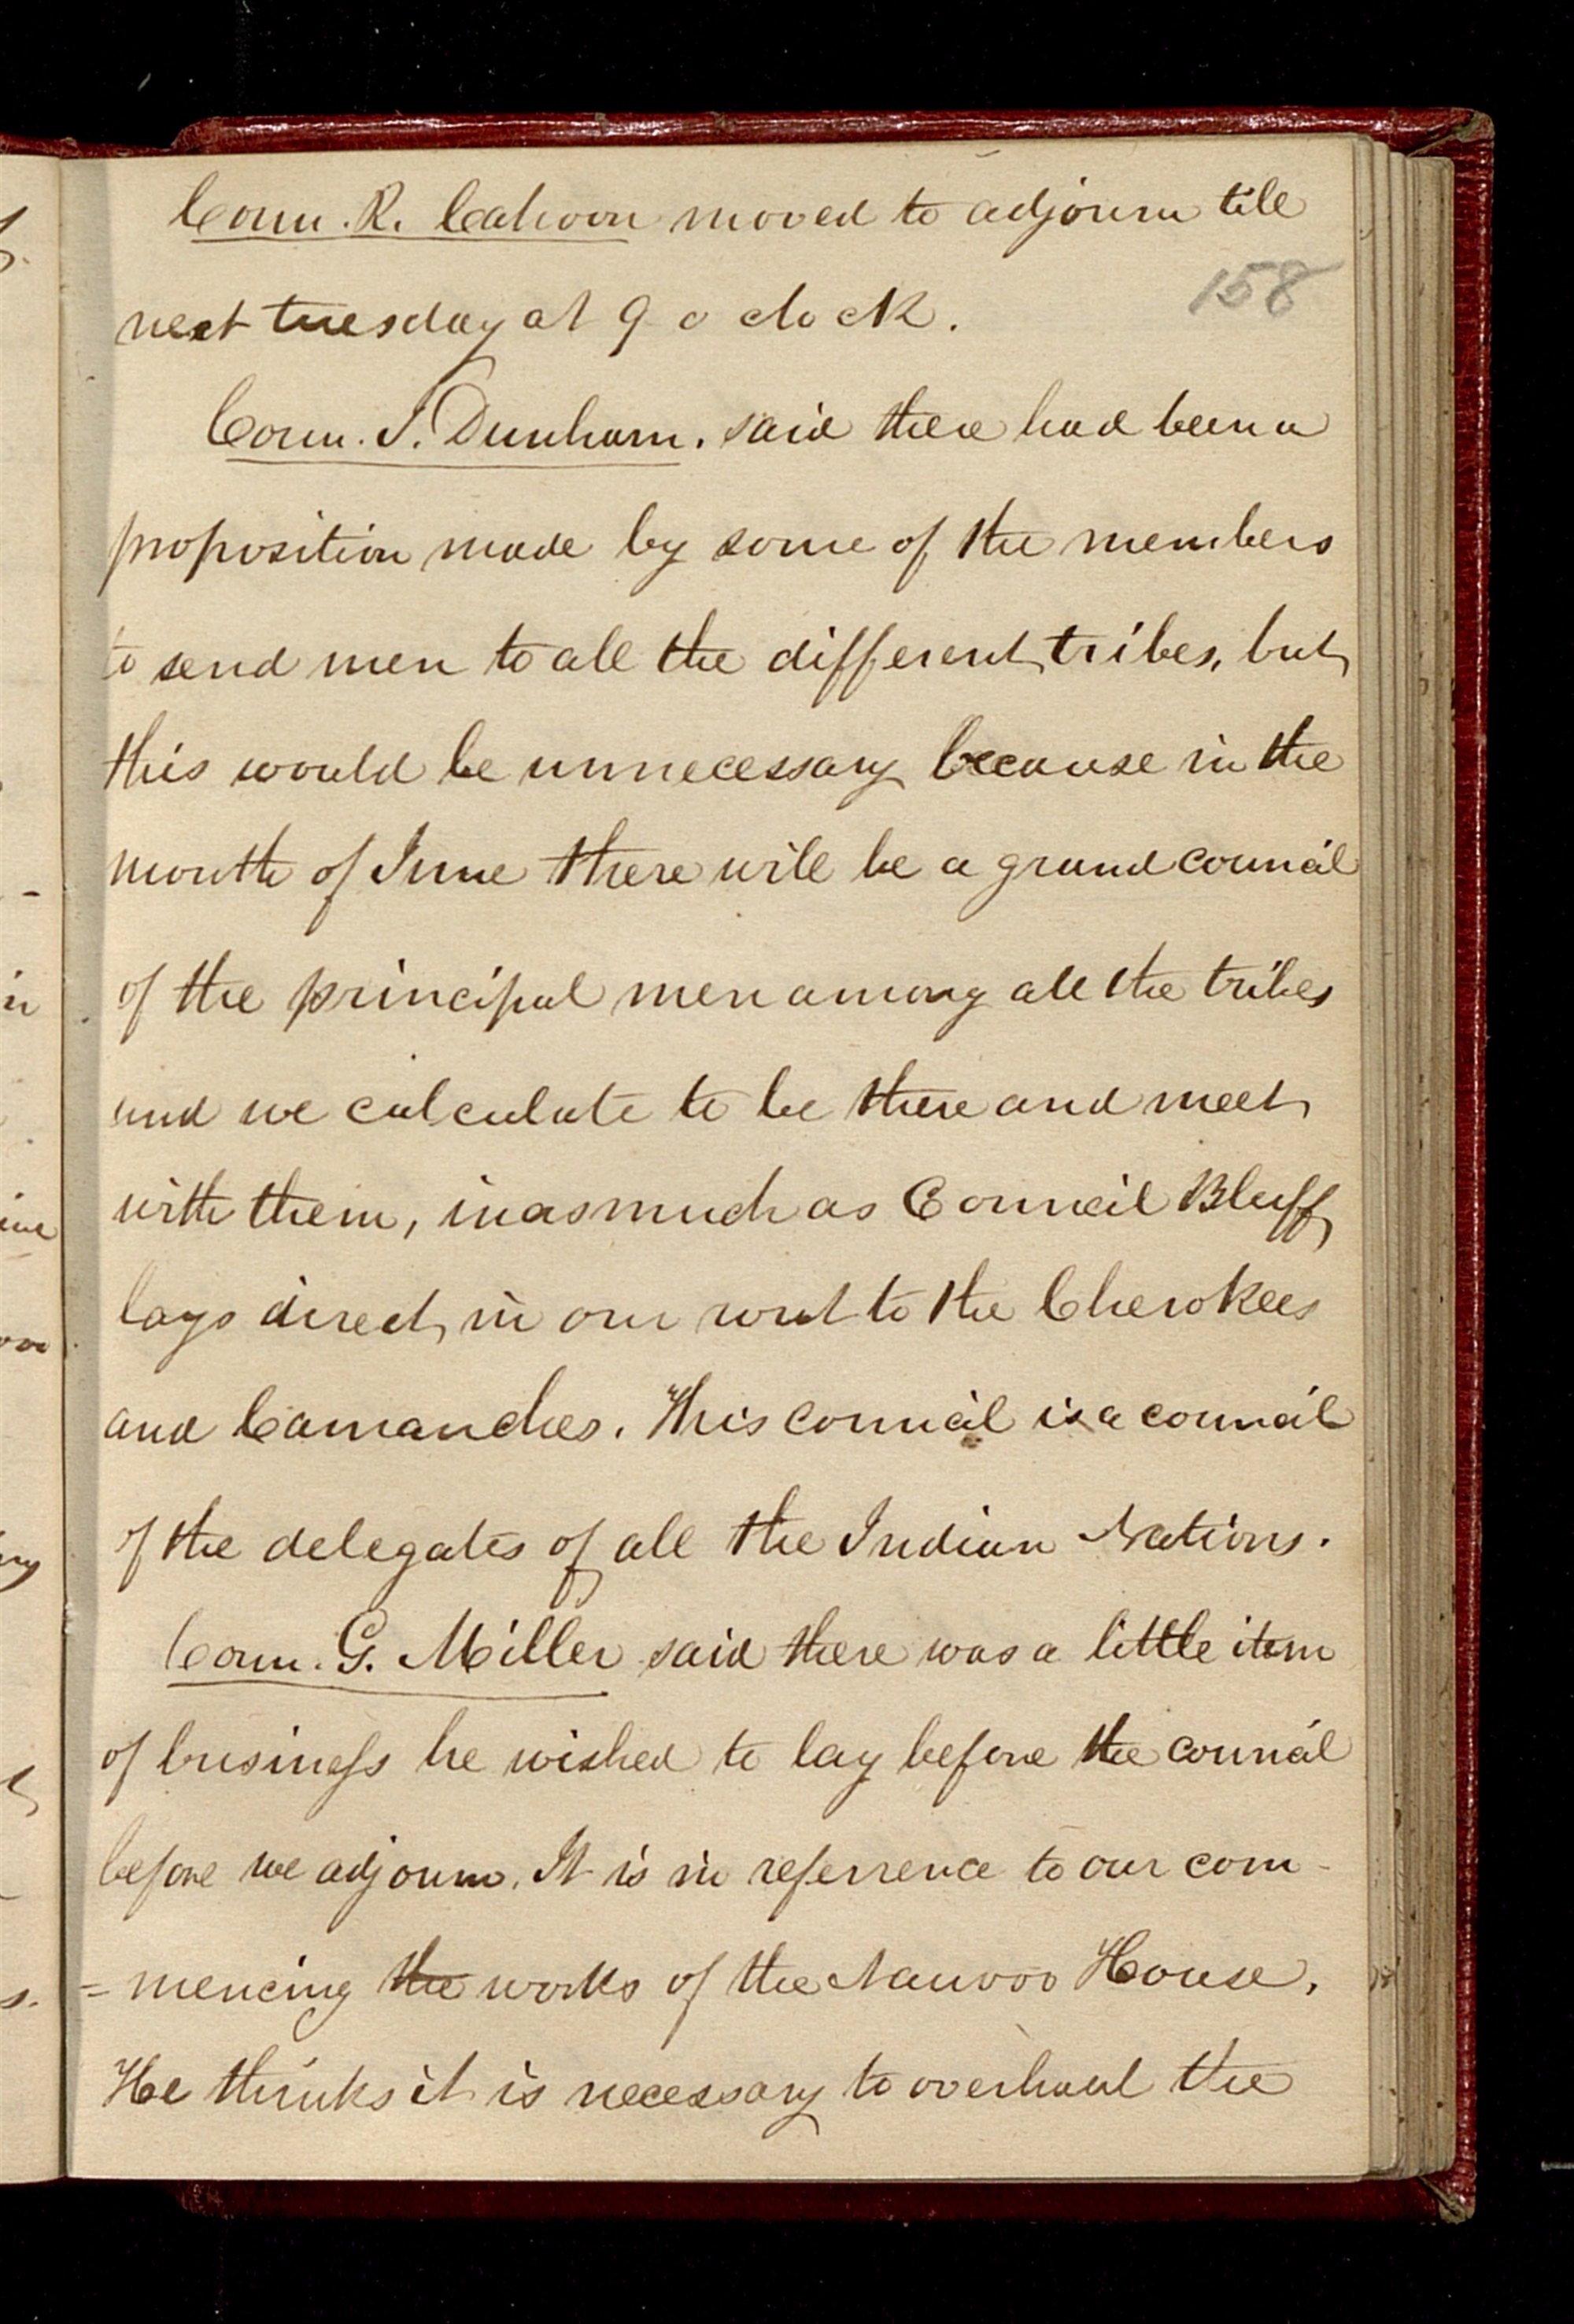 Coun. R. Cahoon moved to adjourn till
158
next tuesday at 9 o clock.
Coun. J. Dunham. said there had been a
proposition made by some of the members
to send men to all the different tribes, but
this would be unnecessary because in the
month of June there will be a grand council
of the principal men among all the tribes
and we calculate to be there and meet
with them, inasmuch as Council Bluff
lays direct in our rout to the Cherokees
and Camanches. This council is a council
of the delegates of all the Indian Nations.
Coun. G. Miller said there was a little item
of business he wished to lay before the council
before we adjourn. It is in referrence to our com-
=mencing the works of the Nauvoo House.
He thinks it is necessary to overhaul the